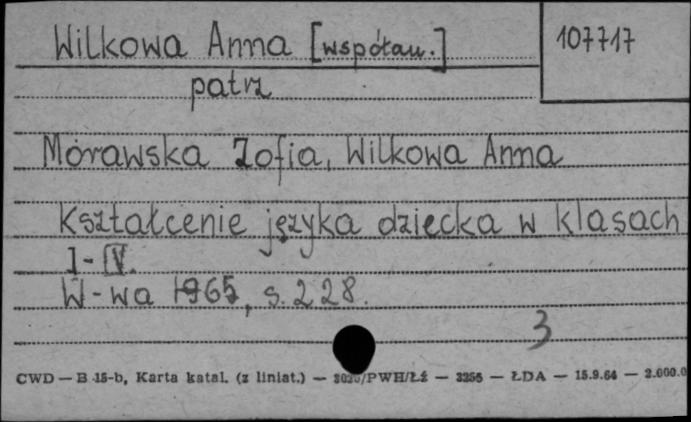 Wilkowa Anna [współau.]
107717
patrz
Morawska Zofia, Wilkowa Anna
Kształcenie języka dziecka w klasach
I-IV.
W-wa 1965, s. 228.
3
CWD — B 15-b, Karta katal. (z liniat.) — /PWH/Łź — 3255 — ŁDA — 15.9.64 — 2.000.0